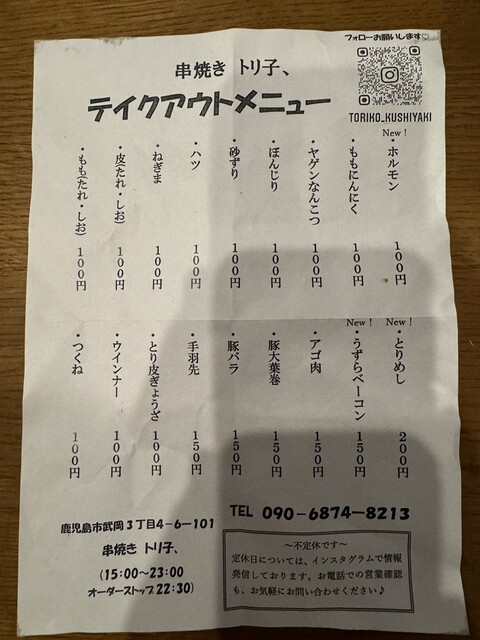 フォローお願いします♡
串焼き トリ子、
テイクアウトメニュー
TORIKO_KUSHIYAKI
New!
・ホルモン 100円
・ももにんにく 100円
・ヤゲンなんこつ 100円
・ぼんじり 100円
・砂ずり 100円
・ハツ 100円
・ねぎま 100円
・皮(たれ・しお) 100円
・もも(たれ・しお) 100円
New!
・とりめし 200円
New!
・うずらベーコン 150円
・アゴ肉 150円
・豚大葉巻 150円
・豚バラ 150円
・手羽先 150円
・とり皮ぎょうざ 100円
・ウインナー 100円
・つくね 100円
TEL 090-6874-8213
鹿児島市武岡3丁目4-6-101
串焼き トリ子、
(15:00~23:00
オーダーストップ22:30)
~不定休です~
定休日については、インスタグラムで情報
発信しております。お電話での営業確認
も、お気軽にお問い合わせください♪